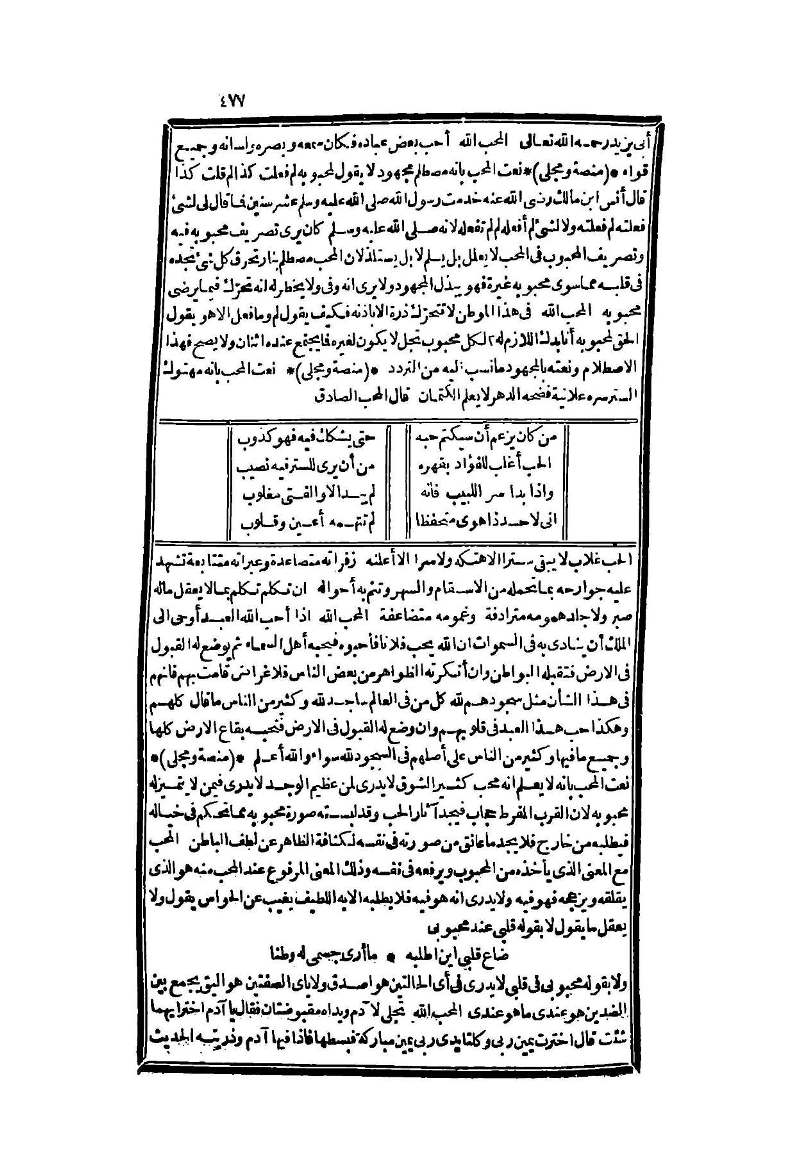 ٤٧٧
أبى يزيد رحمه الله تعالى المحب الله أحب بعض عباده فكان سمعه وبصره ولسانه وجميع
قواه *(منصة ومجلى)* نعت المحب بانه مصطلم مجهود لا يقول لمحبوبه لم فعلت كذا لم قلت كذا
قال أنس ابن مالك رضى الله عنه خدمت رسول الله صلى الله عليه وسلم عشر سنين فما قال لى لشئ
فعلته لم فعلته ولا لشئ لم أفعله لم لم تفعله لانه صلى الله عليه وسلم كان يرى تصريف محبوبه فيه
وتصريف المحبوب فى المحب لا يعلل بل يسلم لا بل يستلذ لان المحب مصطلم بنار تحرق كل شئ تجده
فى قلبه مما سوى محبوبه غيرة فهو يبذل المجهود ولا يرى انه وفى ولا يخطر له انه تحرك فيما يرضى
محبوبه المحب الله فى هذا الموطن لا تتحرك ذرة الا باذنه فكيف يقول لم وما فعل الا هو يقول
الحق لمحبوبه أنا بدك اللازم له لكل محبوب تجل لا يكون لغيره فما يجتمع عنده اثنان ولا يصح فهذا
الاصطلام ونعته بالمجهود ما نسب اليه من التردد *(منصة ومجلى)* نعت المحب بانه مهتوك
الستر سره علانية فضحه الدهر لا يعلم الكتمان قال المحب الصادق
من كان يزعم أن سيكتم حبه حتى يشكك فيه فهو كذوب
الحب أغلب للفؤاد بقهره من أن يرى للستر فيه نصيب
واذا بدا سر اللبيب فانه لم يبد الا والفتى مغلوب
انى لاحسد ذا هوى متحفظا لم تتهمه أعين وقلوب
الحب غلاب لا يبقى سترا الا هتكه ولا سرا الا أعلنه زفراته متصاعدة وعبراته متتابعة تشهد
عليه جوارحه بما تحمله من الاسقام والسهر وتنم به أحواله ان تكلم تكلم بما لا يعقل ماله
صبر ولا جلد همومه مترادفة وغمومه متضاعفة المحب الله اذا أحب الله العبد أوحى الى
الملك أن ينادى به فى السموات ان الله يحب فلانا فأحبوه فيحبه أهل السماء ثم يوضع له القبول
فى الارض فتقبله البواطن وان أنكرته الظواهر من بعض الناس فلاغراض قامت بهم فانهم
فى هذا الشأن مثل سجودهم لله كل من فى العالم ساجد لله وكثير من الناس ما قال كلهم
وهكذا حب هذا العبد فى قلوبهم وان وضع له القبول فى الارض فتحبه بقاع الارض كلها
وجميع ما فيها وكثير من الناس على أصلهم فى السجود لله سواء والله أعلم *(منصة ومجلى)*
نعت المحب بانه لا يعلم انه محب كثير الشوق لا يدرى لمن عظيم الوجد لا يدرى فيمن لا يتميز له
محبوبه لان القرب المفرط حجاب فيجد آثار الحب وقد لبسته صورة محبوبه مما تحكم فى خياله
فيطلبه من خارج فلا يجد ما عانق من صورته فى نفسه لكثافة الظاهر عن لطف الباطن المحب
مع المعنى الذى يأخذه من المحبوب ويرفعه فى نفسه وذلك المعنى المرفوع عند المحب منه هو الذى
يقلقه ويزعجه فهو فيه ولا يدرى انه هو فيه فلا يطلبه الا به اللطيف يغيب عن الحواس يقول ولا
يعقل ما يقول لا بقوله قلبى عند محبوبى
ضاع قلبى اين اطلبه * ما أرى جسمى له وطنا
ولا بقوله محبوبى فى قلبى لا يدرى فى أى الحالتين هو اصدق ولا باى الصفتين هو اليق يجمع بين
الضدين هو عندى ما هو عندى المحب الله تجلى لآدم ويداه مقبوضتان فقال يا آدم اختر ايهما
شئت قال اخترت يمين ربى وكلتا يدى ربى يمين مباركة فبسطها فاذا فيها آدم وذريته الحديث